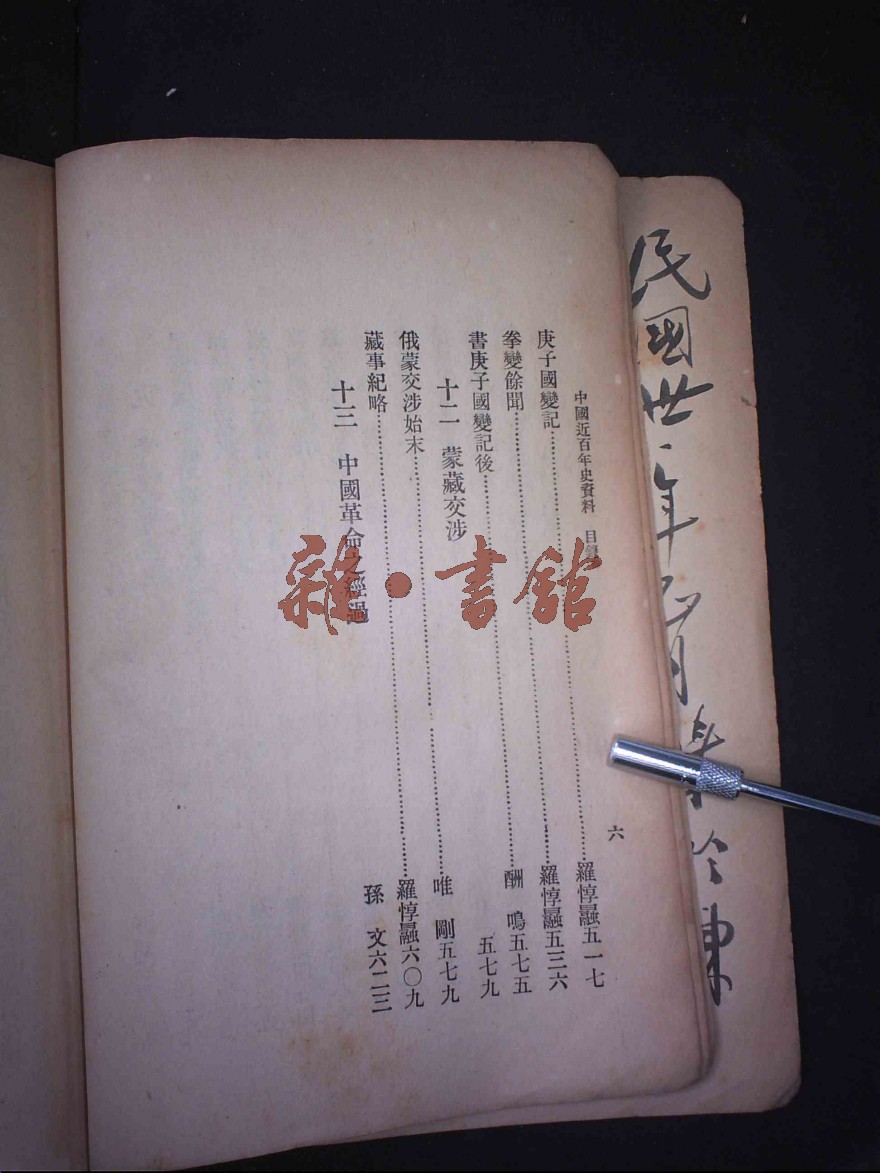 中國近百年史資料 目錄
六
庚子國變記……羅惇曧五一七
拳變餘聞……羅惇曧五三六
書庚子國變記後……酬 鳴五七五
十二 蒙藏交涉 五七九
俄蒙交涉始末……唯 剛五七九
藏事紀略……羅惇曧六〇九
十三 中國革命之經過 孫 文六二三
雜·書館
民國卅一年 月 於陳